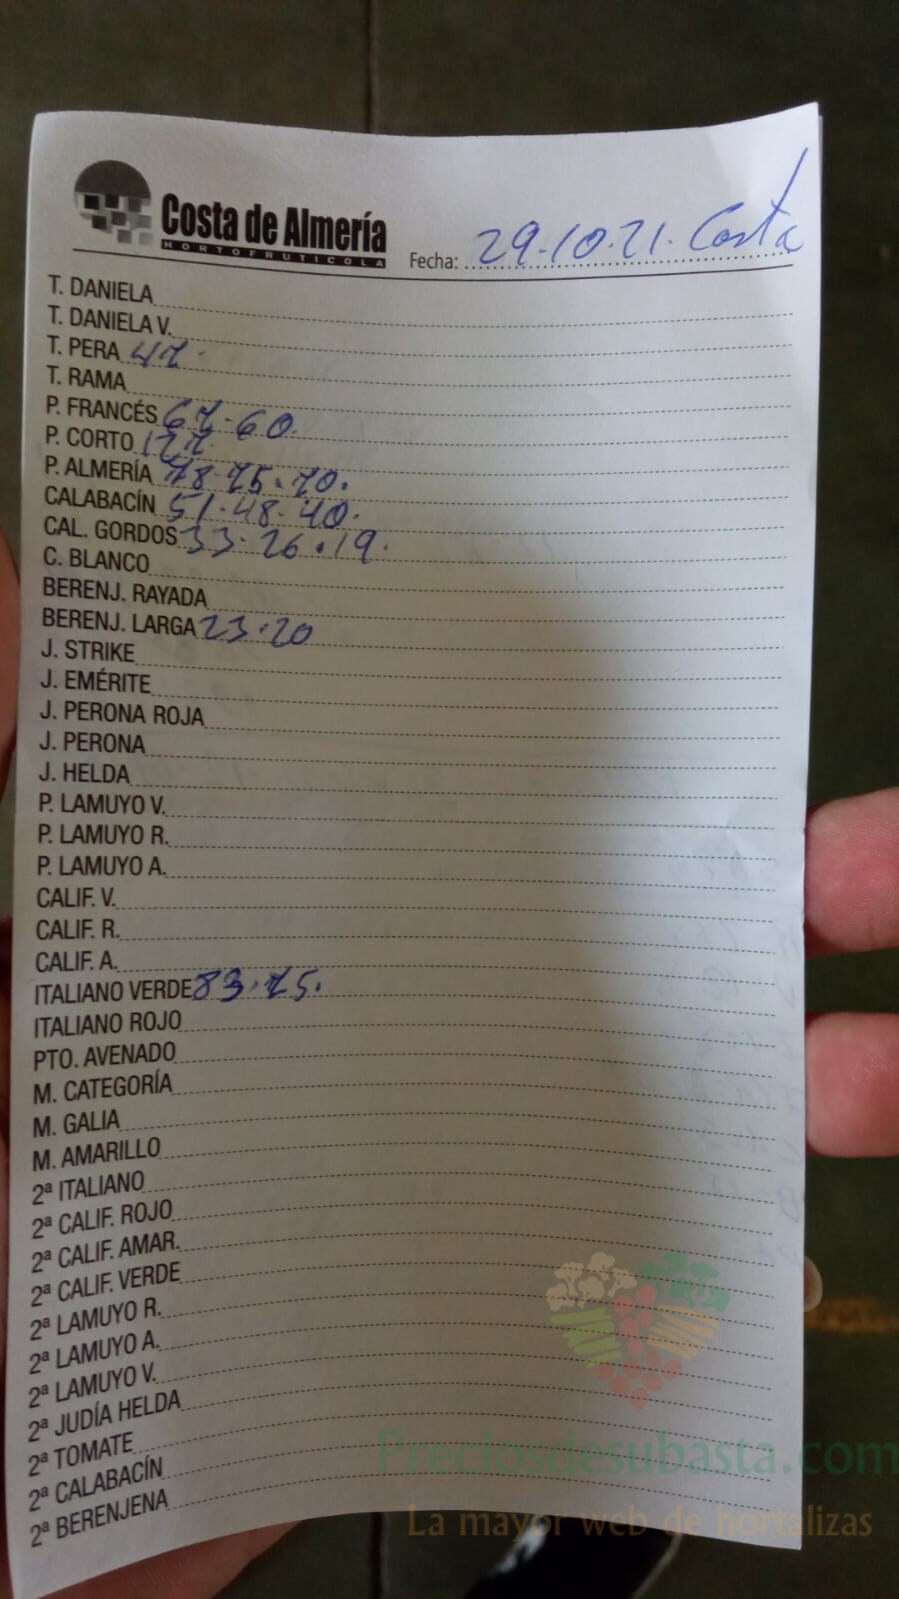 Costa de Almería
HORTOFRUTICOLA
Fecha: 29.10.21. Costa
T. DANIELA
T. DANIELA V.
T. PERA 47.
T. RAMA
P. FRANCÉS 67.60.
P. CORTO 127
P. ALMERÍA 78.75.70.
CALABACÍN 51.48.40.
CAL. GORDOS 33.26.19.
C. BLANCO
BERENJ. RAYADA
BERENJ. LARGA 23.20
J. STRIKE
J. EMÉRITE
J. PERONA ROJA
J. PERONA
J. HELDA
P. LAMUYO V.
P. LAMUYO R.
P. LAMUYO A.
CALIF. V.
CALIF. R.
CALIF. A.
ITALIANO VERDE 83.75.
ITALIANO ROJO
PTO. AVENADO
M. CATEGORÍA
M. GALIA
M. AMARILLO
2ª ITALIANO
2ª CALIF. ROJO
2ª CALIF. AMAR.
2ª CALIF. VERDE
2ª LAMUYO R.
2ª LAMUYO A.
2ª LAMUYO V.
2ª JUDÍA HELDA
2ª TOMATE
2ª CALABACÍN
2ª BERENJENA
Preciosdesubasta.com
La mayor web de hortalizas